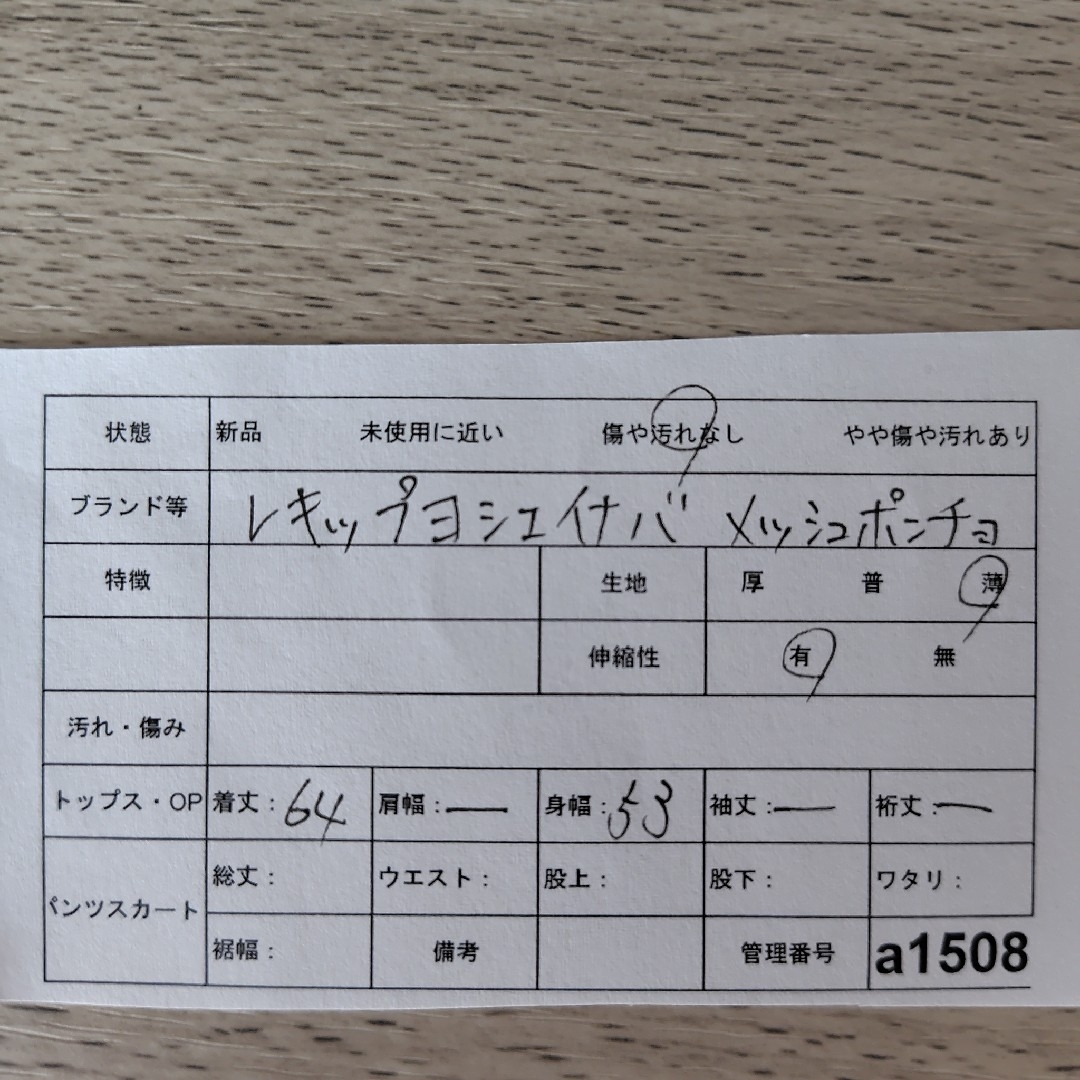 状態 新品 未使用に近い 傷や汚れなし やや傷や汚れあり
ブランド等 レキップヨシエイナバ メッシュポンチョ
特徴 生地 厚 普 薄
伸縮性 有 無
汚れ・傷み
トップス・OP 着丈：64 肩幅：— 身幅：53 袖丈：— 裄丈：—
パンツスカート 総丈： ウエスト： 股上： 股下： ワタリ：
裾幅： 備考 管理番号 a1508